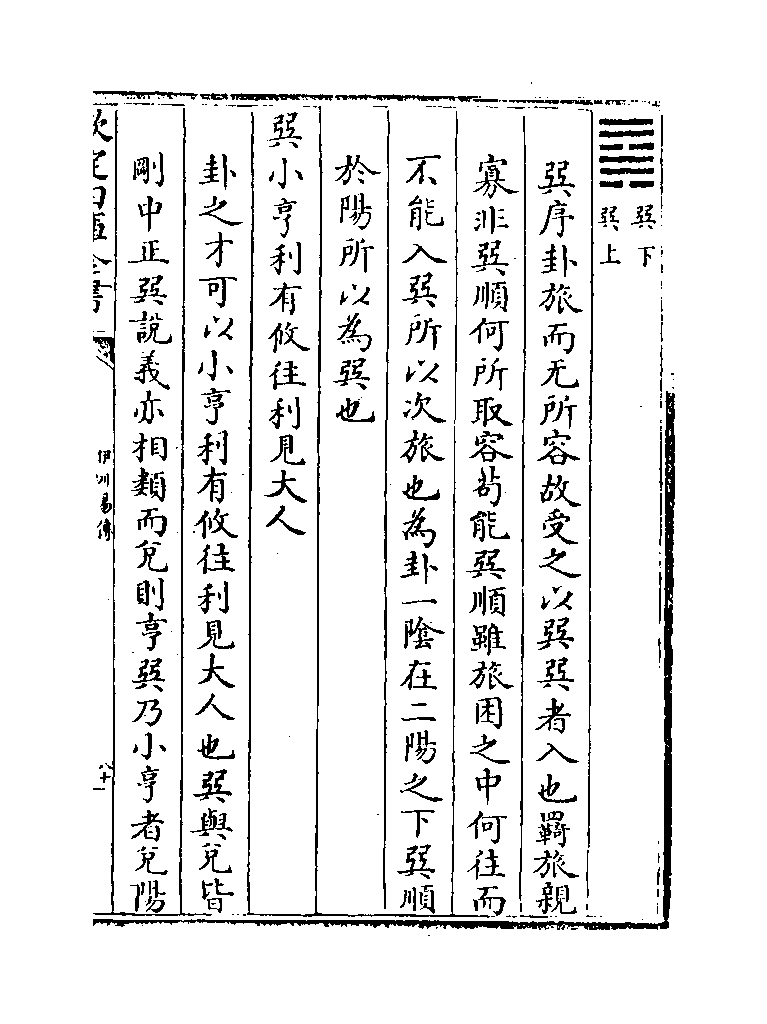 巽下
巽上
巽序卦旅而无所容故受之以巽巽者入也羇旅親
寡非巽順何所取容苟能巽順雖旅困之中何往而
不能入巽所以次旅也為卦一陰在二陽之下巽順
於陽所以為巽也
巽小亨利有攸往利見大人
卦之才可以小亨利有攸往利見大人也巽與兌皆
剛中正巽說義亦相類而兌則亨巽乃小亨者兌陽
欽定四庫全書
伊川易傳
八十一